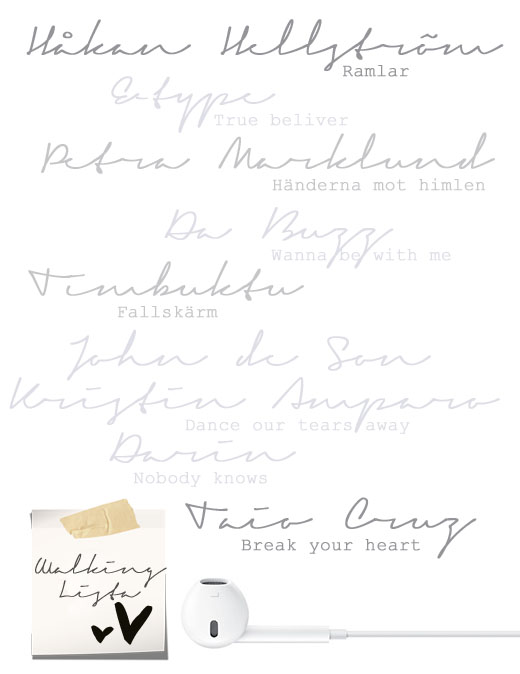 Håkan Hellström
Ramlar
E-type
True beliver
Petra Marklund
Händerna mot himlen
Da Buzz
Wanna be with me
Timbuktu
Fallskärm
John de Son
Kristin Amparo
Dance our tears away
Darin
Nobody knows
Taio Cruz
Break your heart
Walking
Lista